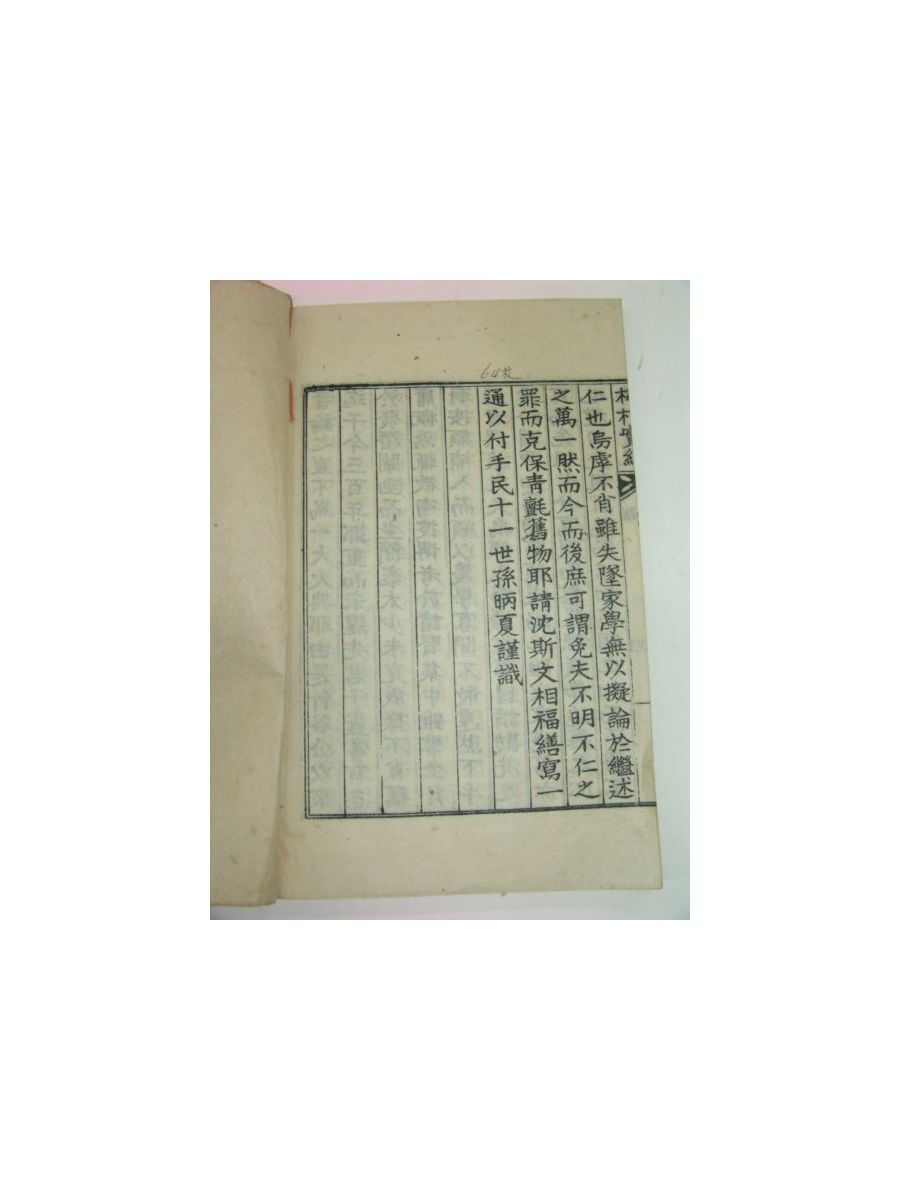 仁也烏虖不肖雖失墜家學無以擬論於繼述
之萬一然而今而後庶可謂免夫不明不仁之
罪而克保青氈舊物耶請沈斯文相福繕寫一
通以付手民十一世孫昞夏謹識
64枚